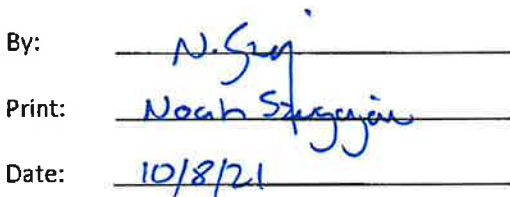 By: N.
Print: Noah
Date: 10/8/21